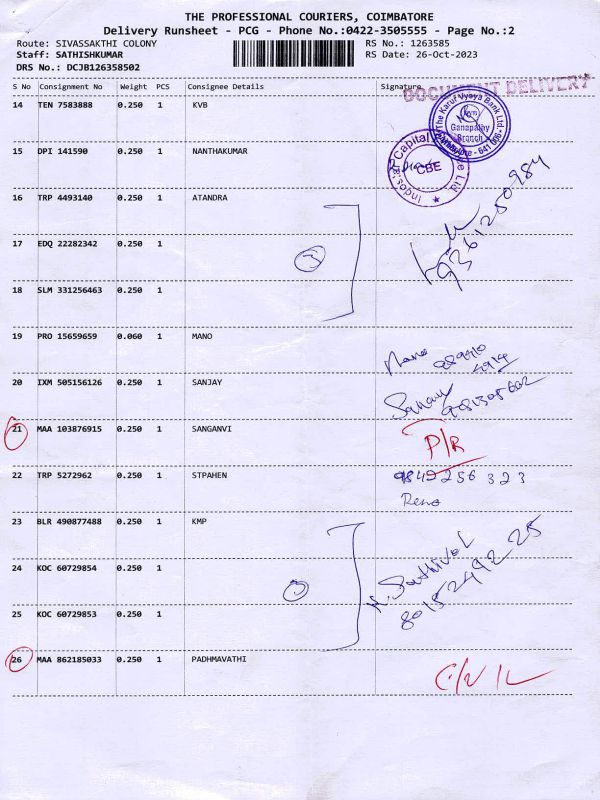 THE PROFESSIONAL COURIERS, COIMBATORE
Delivery Runsheet - PCG - Phone No.:0422-3505555 - Page No.:2
Route: SIVASSAKTHI COLONY RS No.: 1263585
Staff: SATHISHKUMAR RS Date: 26-Oct-2023
DRS No.: DCJB126358502
S No Consignment No Weight PCS Consignee Details Signature
DOCUMENT DELIVERY
14 TEN 7583888 0.250 1 KVB
The Karur Vysya Bank Ltd.
Ganapathy
Branch
641 006
15 DPI 141590 0.250 1 NANTHAKUMAR
Capital
CBE
16 TRP 4493140 0.250 1 ATANDRA
9361250984
17 EDQ 22282342 0.250 1
3
18 SLM 331256463 0.250 1
19 PRO 15659659 0.060 1 MANO
Mano
20 IXM 505156126 0.250 1 SANJAY
Sanjay
21 MAA 103876915 0.250 1 SANGANVI
P/R
22 TRP 5272962 0.250 1 STPAHEN
9842256323
Reno
23 BLR 490877488 0.250 1 KMP
24 KOC 60729854 0.250 1
3
8015249225
25 KOC 60729853 0.250 1
26 MAA 862185033 0.250 1 PADHMAVATHI